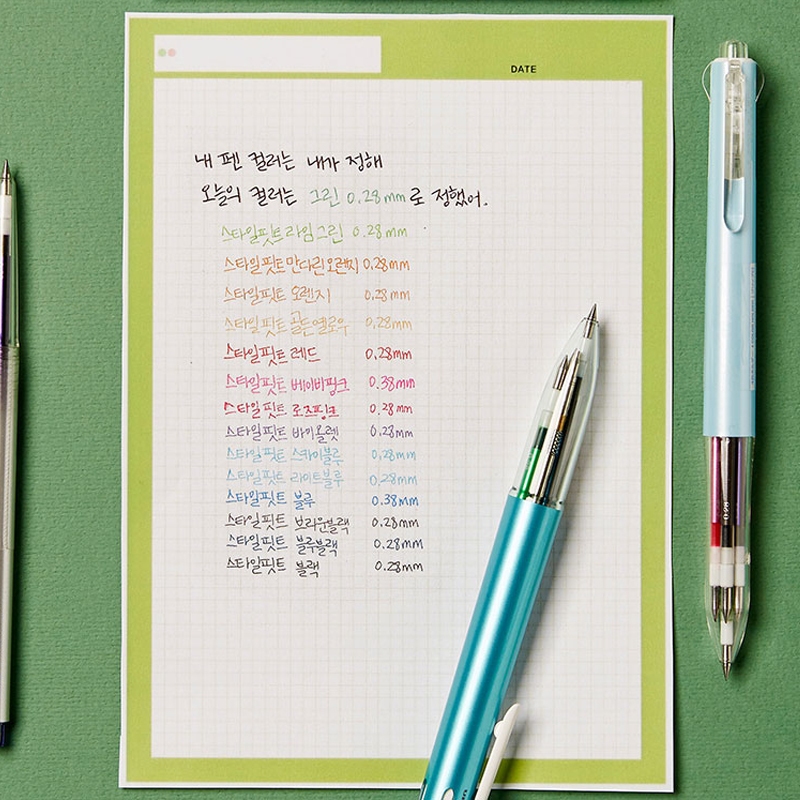 DATE
내 펜 컬러는 내가 정해
오늘의 컬러는 그린 0.28mm로 정했어.
스타일핏트 라임그린 0.28mm
스타일핏트 만다린오렌지 0.28mm
스타일핏트 오렌지 0.28mm
스타일핏트 골든옐로우 0.28mm
스타일핏트 레드 0.28mm
스타일핏트 베이비핑크 0.38mm
스타일핏트 로즈핑크 0.28mm
스타일핏트 바이올렛 0.28mm
스타일핏트 스카이블루 0.28mm
스타일핏트 라이트블루 0.28mm
스타일핏트 블루 0.38mm
스타일핏트 브라운블랙 0.28mm
스타일핏트 블루블랙 0.28mm
스타일핏트 블랙 0.28mm